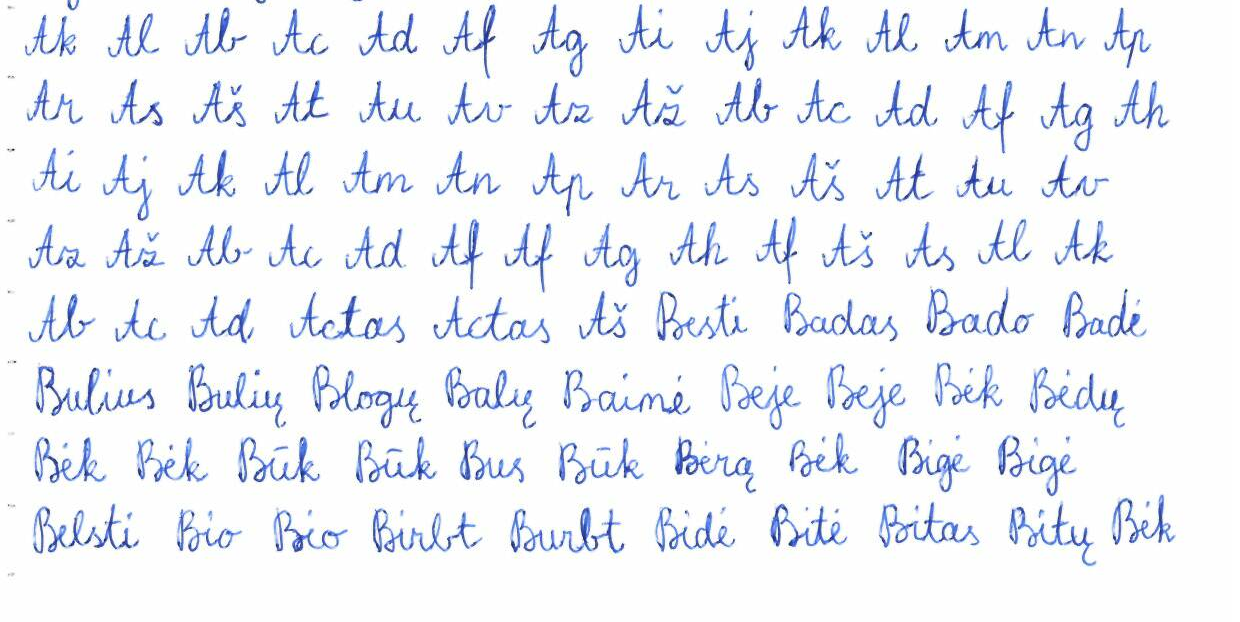 Ak Al Ab Ac Ad Af Ag Ai Aj Ak Al Am An Ap
Ar As Aš At Au Av Az Až Ab Ac Ad Af Ag Ah
Ai Aj Ak Al Am An Ap Ar As Aš At Au Av
Az Až Ab Ac Ad Af Af Ag Ah Af Aš As Al Ak
Ab Ac Ad Actas Actas Aš Besti Badas Bado Badė
Bulius Bulių Blogų Balų Baimė Beje Beje Bėk Bėdų
Bėk Bėk Būk Būk Bus Būk Bėrą Bėk Bigė Bigė
Belsti Bio Bio Birbt Burbt Bidė Bitė Bitas Bitų Bėk